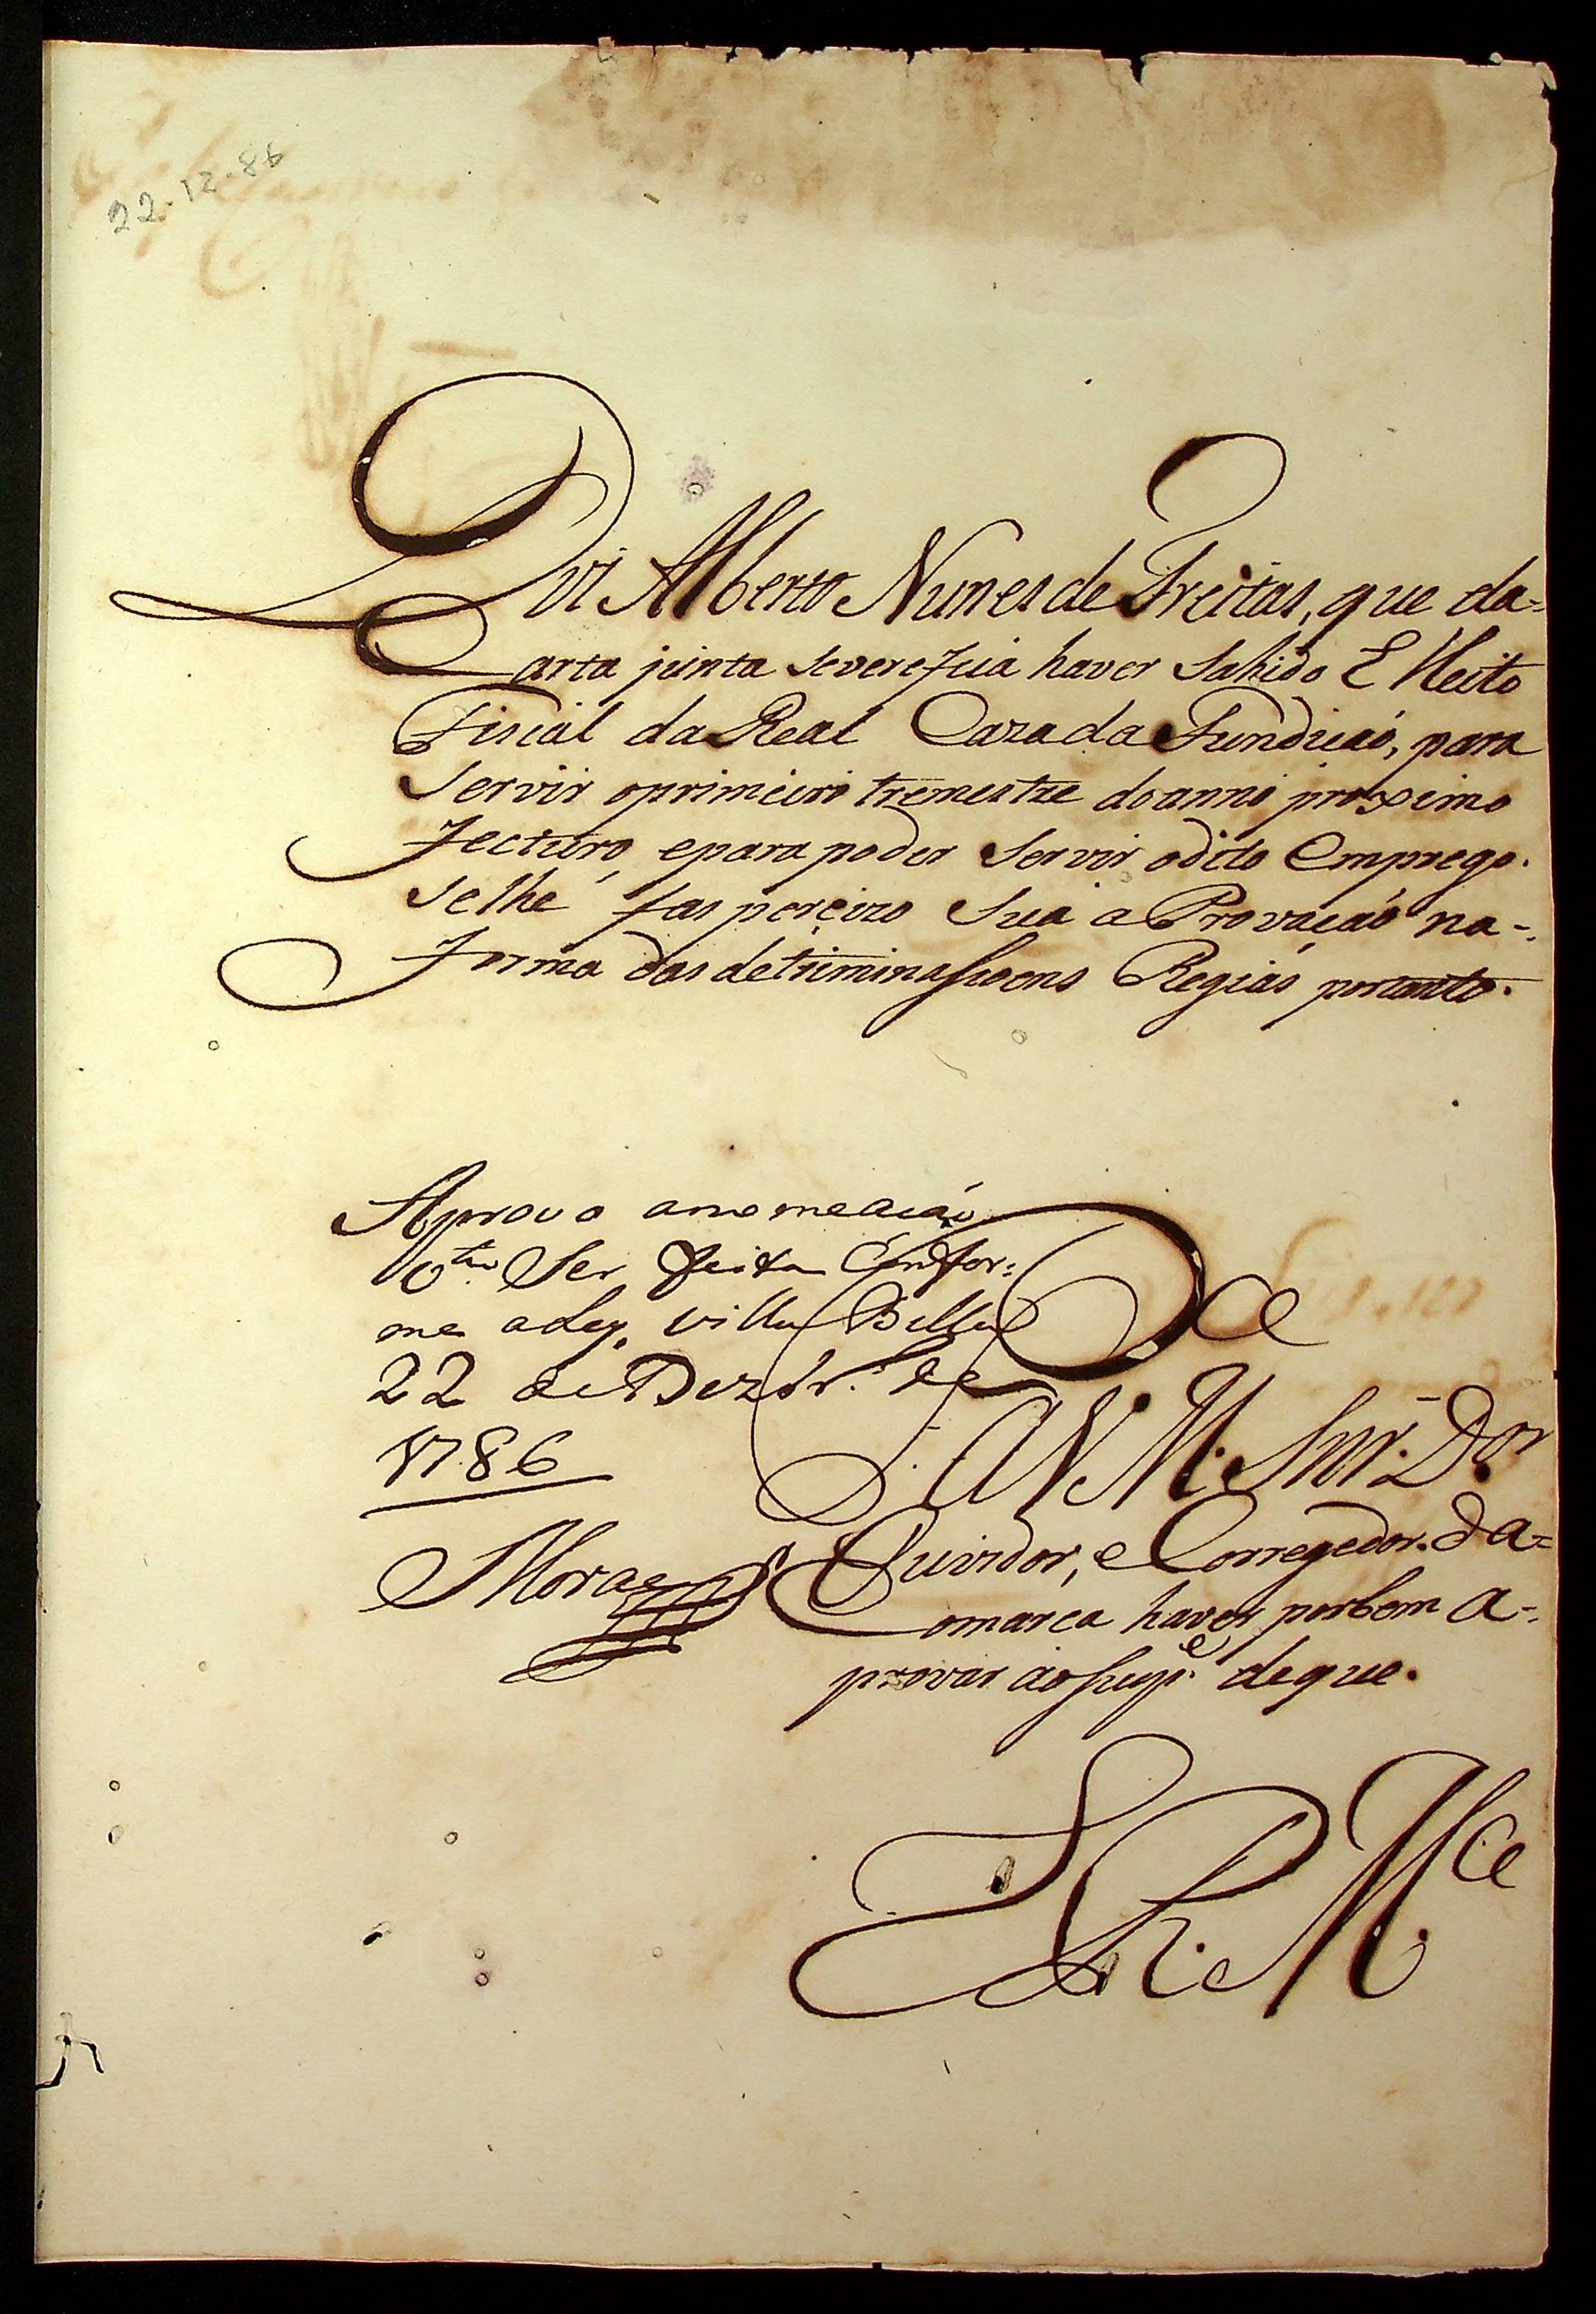 22-12-86
Dis Alberto Nunes de Freitas, que da=
Carta junta severefica haver sahido Elleito
Fiscal da Real Caza da Fundicaó, para
Servir oprimeiro tremestre doanno proximo
fecturo, epara poder Servir odito Emprego.
selhe fas perçizo Sua aProvaçaó na-
forma das detriminassoens Regias portanto.
Aprovo anomeacaó
Ser feita Comfor=
me aLey. Villa Bella
22 de Dezbr.º de
1786
Moraes
Pce
A V M. Snr. D.or
Ouvidor, e Corregedor. da=
Comarca haver porbem a-
provar aosupp.e deque.
E R. M.ce